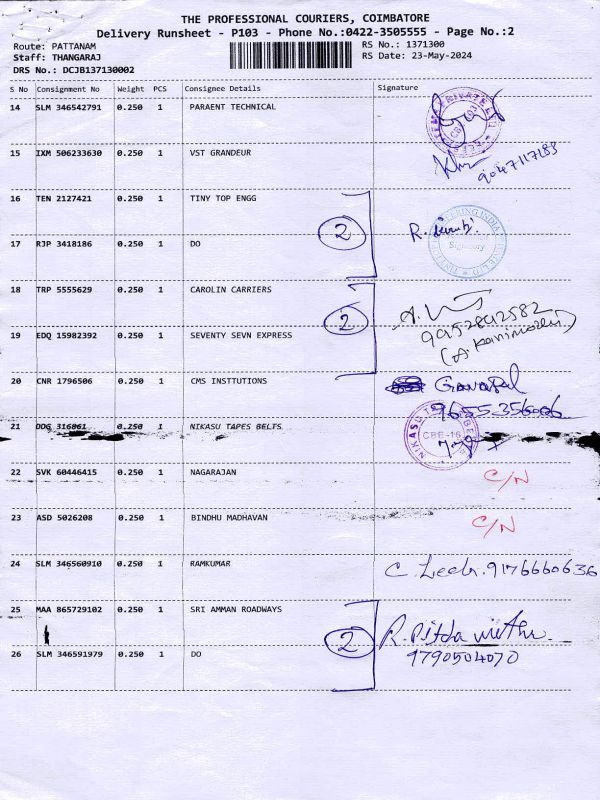 THE PROFESSIONAL COURIERS, COIMBATORE
Delivery Runsheet - P103 - Phone No.:0422-3505555 - Page No.:2
Route: PATTANAM
RS No.: 1371300
Staff: THANGARAJ
RS Date: 23-May-2024
DRS No.: DCJB137130002
S No Consignment No Weight PCS Consignee Details Signature
14 SLM 346542791 0.250 1 PARAENT TECHNICAL
15 IXM 506233630 0.250 1 VST GRANDEUR 9047117183
16 TEN 2127421 0.250 1 TINY TOP ENGG
2 R.
Signatory
17 RJP 3418186 0.250 1 DO
18 TRP 5555629 0.250 1 CAROLIN CARRIERS
2 9952892582
19 EDQ 15982392 0.250 1 SEVENTY SEVN EXPRESS
(A. Kanimozhi)
20 CNR 1796506 0.250 1 CMS INSTTUTIONS
9655356006
21 DDG 316861 0.250 1 NIKASU TAPES BELTS
CBE-16
22 SVK 60446415 0.250 1 NAGARAJAN C/N
23 ASD 5026208 0.250 1 BINDHU MADHAVAN C/N
24 SLM 346560910 0.250 1 RAMKUMAR C. 9176660636
25 MAA 865729102 0.250 1 SRI AMMAN ROADWAYS
2 R.
9790504070
26 SLM 346591979 0.250 1 DO